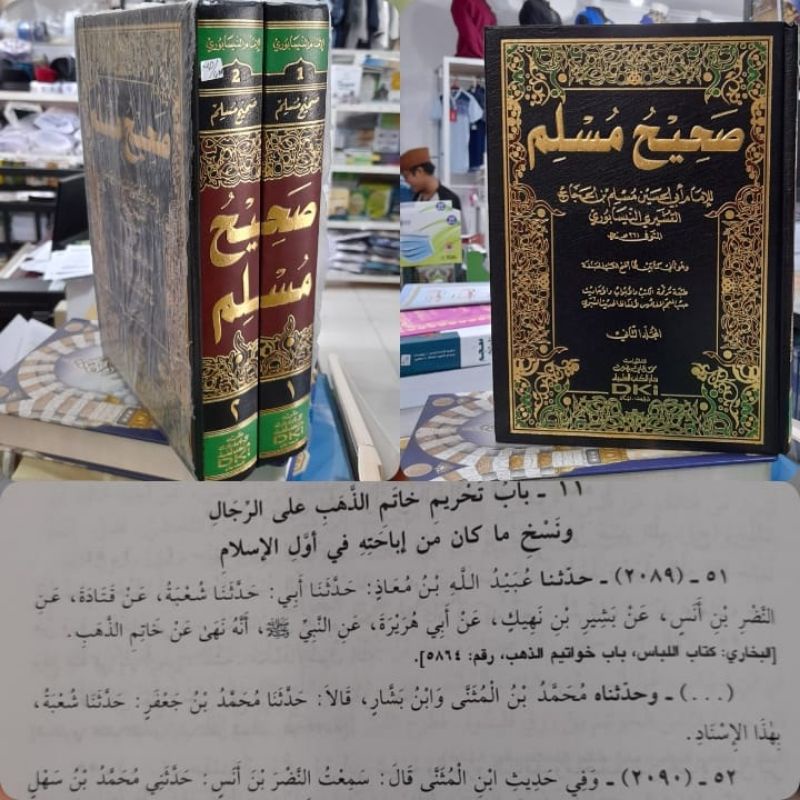 للإمام النيسابوري
2
صحيح مسلم
صَحِيْحُ مُسْلِم
٢
للإمام النيسابوري
1
صحيح مسلم
١
DKi
صَحِيْحُ مُسْلِم
للإمام أبي الحسين مسلم بن الحجاج
القشيري النيسابوري
المتوفى ٢٦١ هـ
المجلد الثاني
محمد علي بيضون
دار الكتب العلمية
DKi
١١ - بابُ تَحْرِيمِ خاتَمِ الذَّهَبِ على الرِّجَالِ
ونَسْخِ ما كان من إباحَتِهِ في أوَّلِ الإسلامِ
٥١ - (٢٠٨٩) - حدّثنا عُبَيْدُ اللَّهِ بْنُ مُعَاذٍ: حَدَّثَنَا أَبِي: حَدَّثَنَا شُعْبَةُ، عَنْ قَتَادَةَ، عَنِ
النَّضْرِ بْنِ أَنَسٍ، عَنْ بَشِيرِ بْنِ نَهِيكٍ، عَنْ أَبِي هُرَيْرَةَ، عَنِ النَّبِيِّ ﷺ، أَنَّهُ نَهَىٰ عَنْ خَاتِمِ الذَّهَبِ.
[البخاري: كتاب اللباس، باب خواتيم الذهب، رقم: ٥٨٦٤].
(...) - وحدّثناه مُحَمَّدُ بْنُ الْمُثَنَّى وَابْنُ بَشَّارٍ، قَالاَ: حَدَّثَنَا مُحَمَّدُ بْنُ جَعْفَرٍ: حَدَّثَنَا شُعْبَةُ،
بِهٰذَا الإِسْنَادِ.
٥٢ - (٢٠٩٠) - وَفِي حَدِيثِ ابْنِ الْمُثَنَّى قَالَ: سَمِعْتُ النَّضْرَ بْنَ أَنَسٍ: حَدَّثَنِي مُحَمَّدُ بْنُ سَهْلٍ